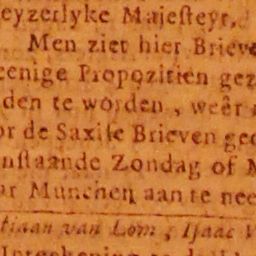 eyzerlyke Majesteyt,
Men ziet hier Brieve
eenige Propozitien gez
den te worden, weêr
or de Saxise Brieven ge
nstaande Zondag of M
ar Munchen aan te nee
tiaan van Lom, Isaac V